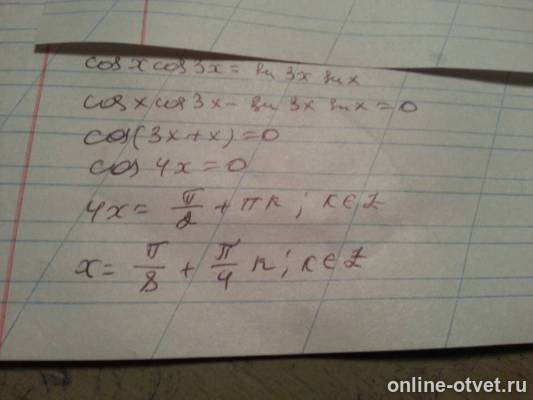 cos x cos 3x = sin 3x sin x
cos x cos 3x - sin 3x sin x = 0
cos(3x+x) = 0
cos 4x = 0
4x = π/2 + πk; k∈Z
x = π/8 + π/4 k; k∈Z
online-otvet.ru